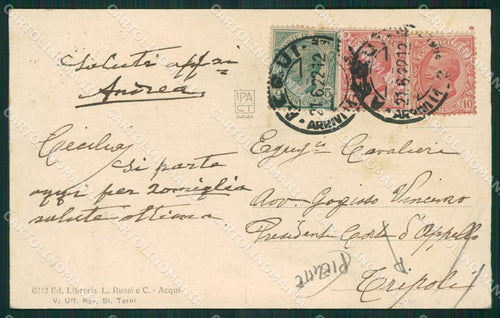 Saluti affni
Andrea
Cecilia
si parte
oggi per
salute ottima
IPA
CT
ACQUI
21.6.22 12
ARRIVI
ACQUI
21.6.22 12
ARRIVI
10
Egregio Cavaliere
Avv Gogioso Vincenzo
President Corte d'Appello
Tripoli
6212 Ed. Libreria L. Russi e C. - Acqui
V: Uff. Rev. St. Terni
CARTOLINOMANIA